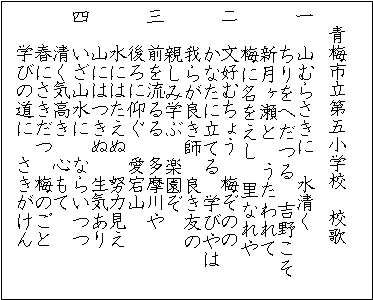 青梅市立第五小学校　校歌
一　山むらさきに　水清く
ちりをへだつる　吉野こそ
新月ヶ瀬と　うたわれて
梅に名をえし　里なれや
二　文好むちょう　梅ぞのの
かなたに立てる　学びやは
我らが良き師　良き友の
親しみ学ぶ　楽園ぞ
三　前を流るる　多摩川や
後ろに仰ぐ　愛宕山
水にはたえぬ　努力見え
山にはつきぬ　生気あり
四　いざ山水に　ならいつつ
清く気高き　心もて
春にさきだつ　梅のごと
学びの道に　さきがけん